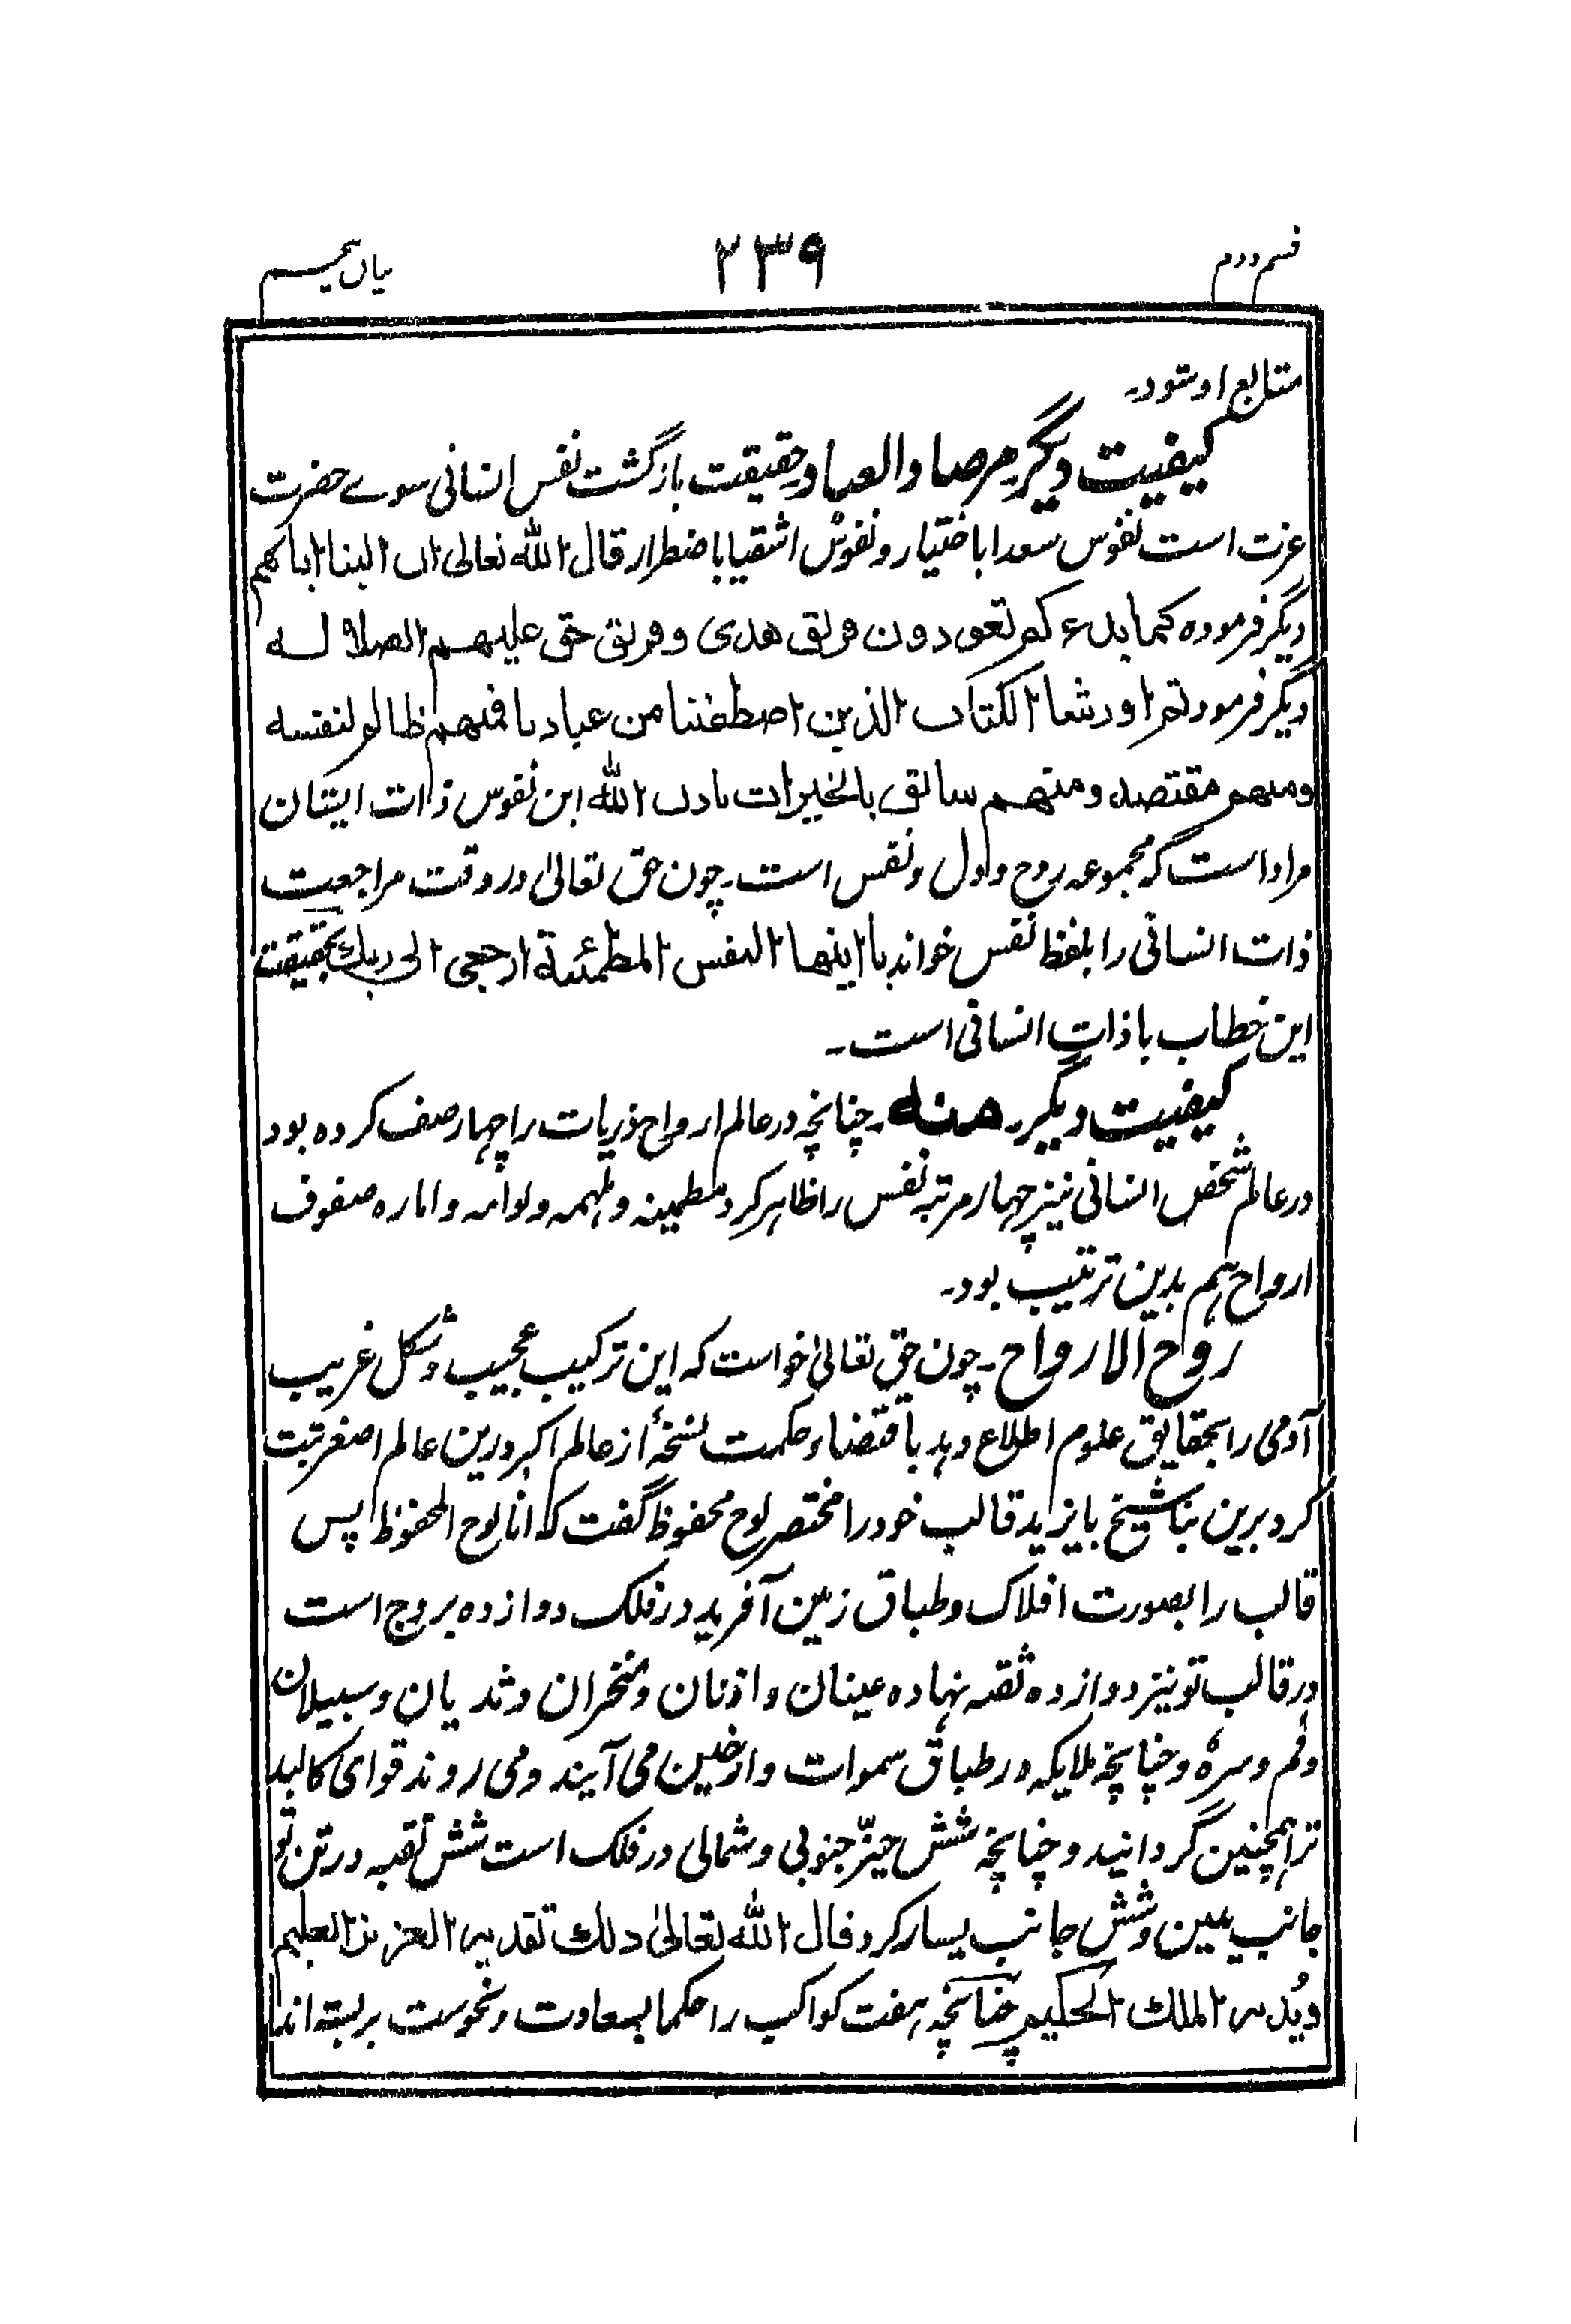 قسم دوم
۲۳۹
بیان پنجم
متابع او شود۔
کیفیت دیگر۔ مرصاد العباد حقیقت بازگشت نفس انسانی سوے حضرت
عزت است نفوس سعدا باختیار و نفوس اشقیا باضطرار قال الله تعالی ان الینا ایابهم
دیگر فرموده کما بدءکم تعودون فریق هدی و فریق حق علیهم الضلاله
دیگر فرمود ثم اورثنا الکتاب الذین اصطفینا من عبادنا فمنهم ظالم لنفسه
ومنهم مقتصد و منهم سابق بالخیرات باذن الله این نفوس ذات ایشان
مراد است که مجموعه روح و دل و نفس است۔ چون حق تعالیٰ در وقت مراجعت
ذات انسانی را بلفظ نفس خواند یا ایتها النفس المطمئنة ارجعی الی ربك بحقیقت
این خطاب با ذات انسانی است۔
کیفیت دیگر۔ منه۔ چنانچه در عالم ارواح ذریات را چهار صف کرده بود
در عالم شخص انسانی نیز چهار مرتبه نفس را ظاهر کرد مطمینه و ملهمه و لوامه و اماره صفوف
ارواح هم بدین ترتیب بود۔
روح الارواح۔ چون حق تعالیٰ خواست که این ترکیب عجیب و شکل غریب
آدمی را بحقایق علوم اطلاع دهد باقتضاء حکمت نسخهٔ از عالم اکبر درین عالم اصغر ثبت
کرد برین بنا شیخ بایزید قالب خود را مختصر لوح محفوظ گفت که انا لوح المحفوظ پس
قالب را بصورت افلاک و طباق زمین آفرید در فلک دوازده بروج است
در قالب تو نیز دوازده ثقبه نهاده عینان و اذنان و منخران و ثدیان و سبیلان
و فم و سره و چنانچه ملایکه در طباق سموات و ارضین می آیند و می روند قوای کالبد
ترا همچنین گردانید و چنانچه شش حیّز جنوبی و شمالی در فلک است شش ثقبه در تن تو
جانب یمین و شش جانب یسار کرد قال الله تعالیٰ ذلك تقدیر العزیز العلیم
و تدبیر الملك الحکیم چنانچه هفت کواکب را حکما بسعادت و نحوست بر بسته اند